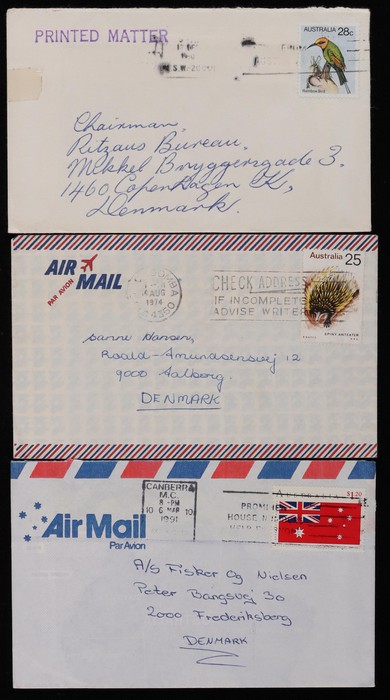 PRINTED MATTER
AUSTRALIA
28c
Rainbow Bird
N.S.W. 2000
Chairman,
Ritzaus Bureau,
Mikkel Bryggersgade 3.
1460 Copenhagen K,
Denmark.
AIR MAIL
PAR AVION
AUG
1974
4350
CHECK ADDRESS
IF INCOMPLETE
ADVISE WRITER
Australia 25
SPINY ANTEATER
Sanne Hansen,
Roald-Amundsensvej 12
9000 Aalborg.
DENMARK
Air Mail
Par Avion
CANBERRA
M.C.
8 -PM
10 6 MAR 10
1991
$1.20
HOUSE
A/S Fisker Og Nielsen
Peter Bangsvej 30
2000 Frederiksberg
DENMARK